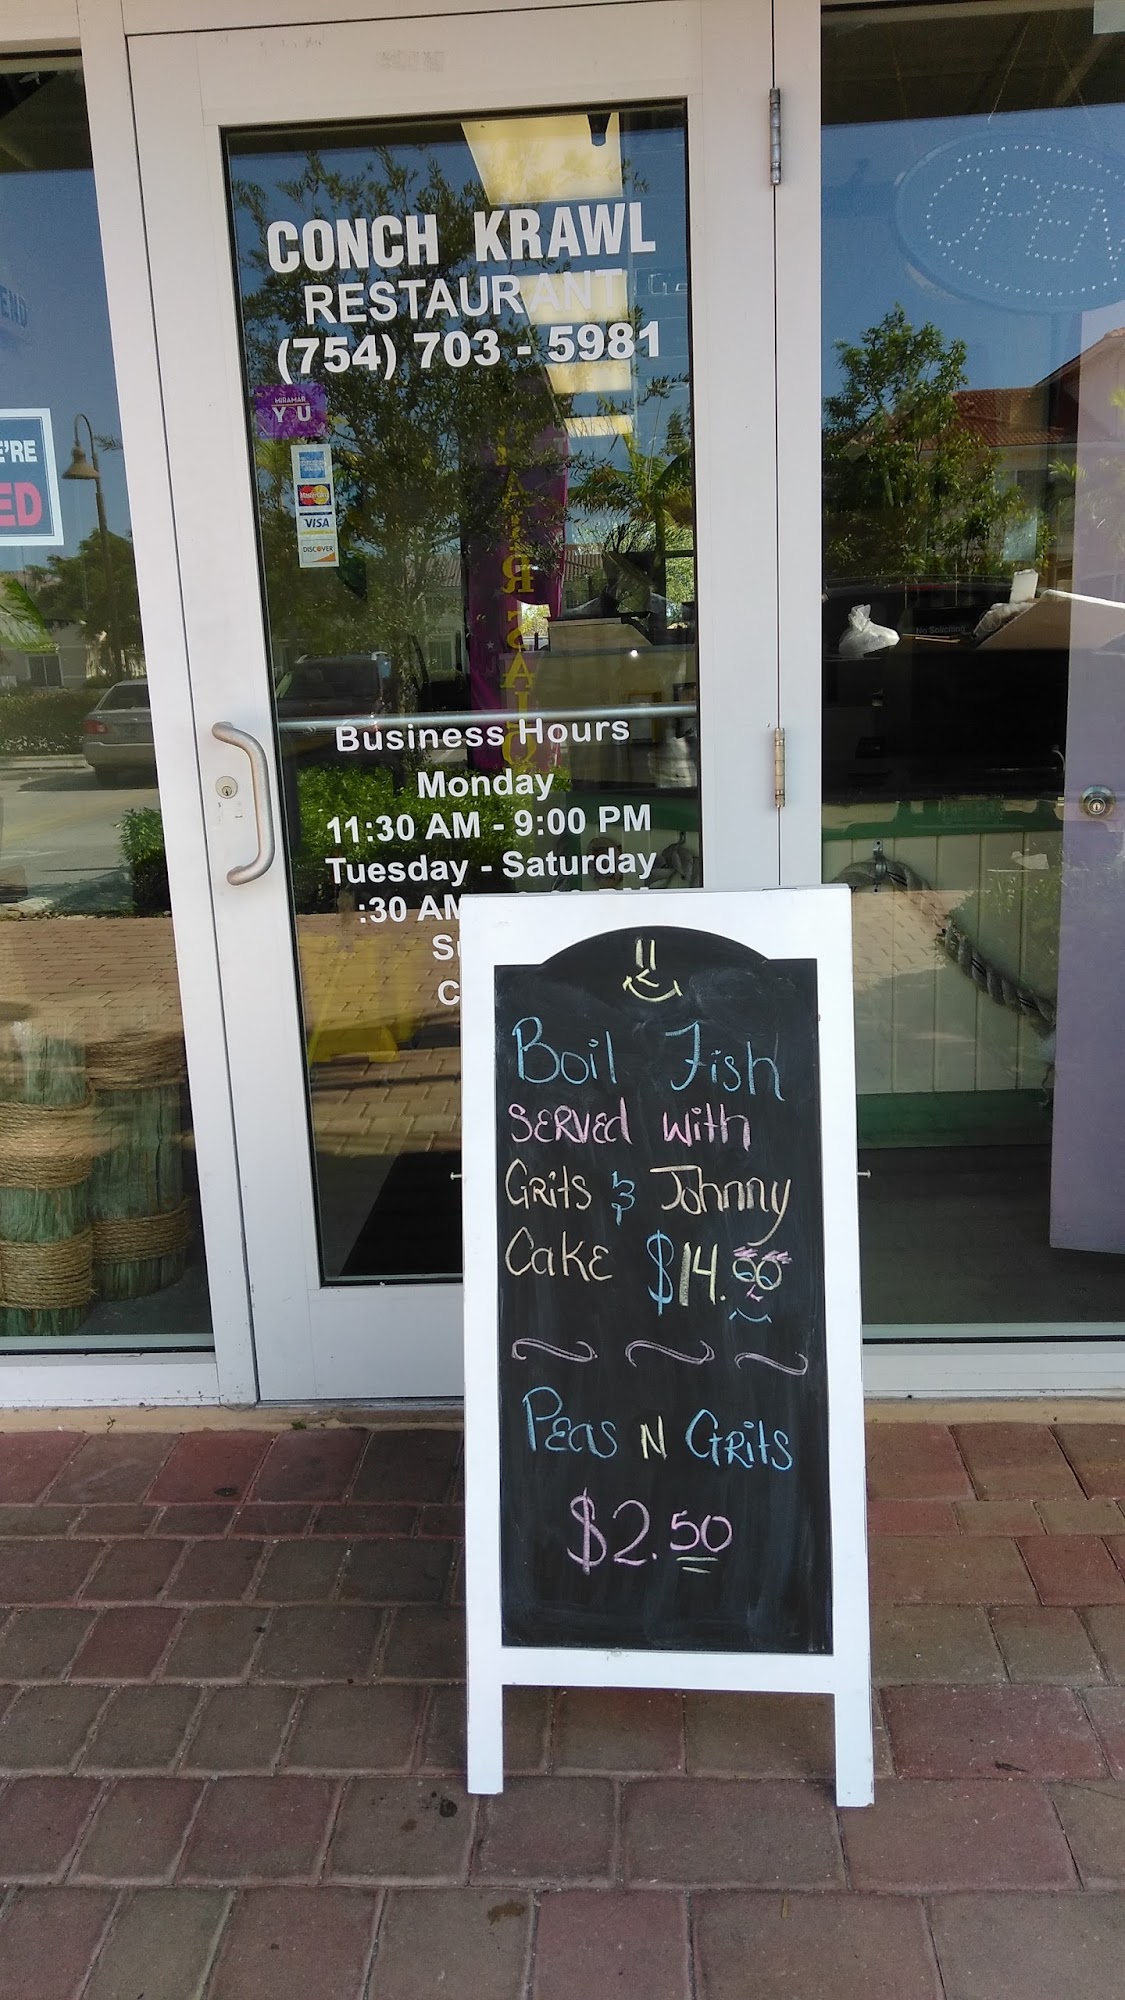 CONCH KRAWL
RESTAURANT
(754) 703 - 5981
MIRAMAR
Y U
MasterCard
VISA
DISCOVER
E'RE
ED
No Soliciting
Business Hours
Monday
11:30 AM - 9:00 PM
Tuesday - Saturday
:30 AM
Su
C
Boil Fish
SERVED With
GRits & Johnny
Cake $14.00
PEAS N GRits
$2.50